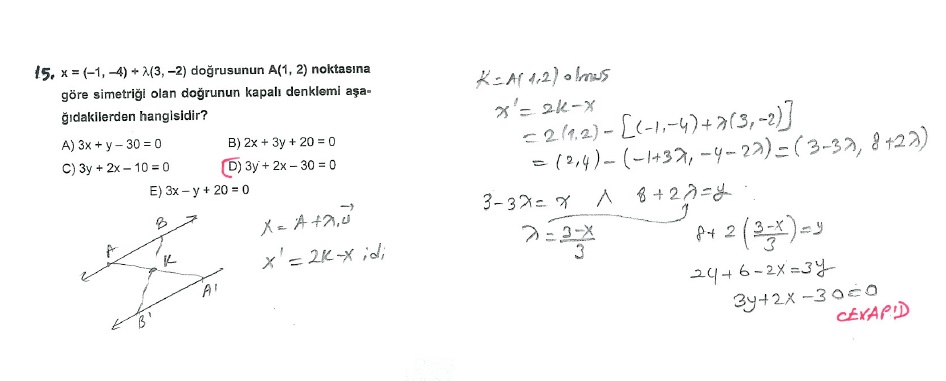 15. x = (–1, –4) + λ(3, –2) doğrusunun A(1, 2) noktasına
göre simetriği olan doğrunun kapalı denklemi aşa-
ğıdakilerden hangisidir?
A) 3x + y – 30 = 0 B) 2x + 3y + 20 = 0
C) 3y + 2x – 10 = 0 D) 3y + 2x – 30 = 0
E) 3x – y + 20 = 0
A B K A' B'
X = A + λ.u⃗
x' = 2K-x idi
K = A(1,2) olmuş
x' = 2K-x
= 2(1,2) - [(-1,-4)+λ(3,-2)]
= (2,4) - (-1+3λ, -4-2λ) = (3-3λ, 8+2λ)
3-3λ = x ∧ 8+2λ=y
λ = 3-x/3
8+2(3-x/3)=y
24+6-2x=3y
3y+2x-30=0
CEVAP:D